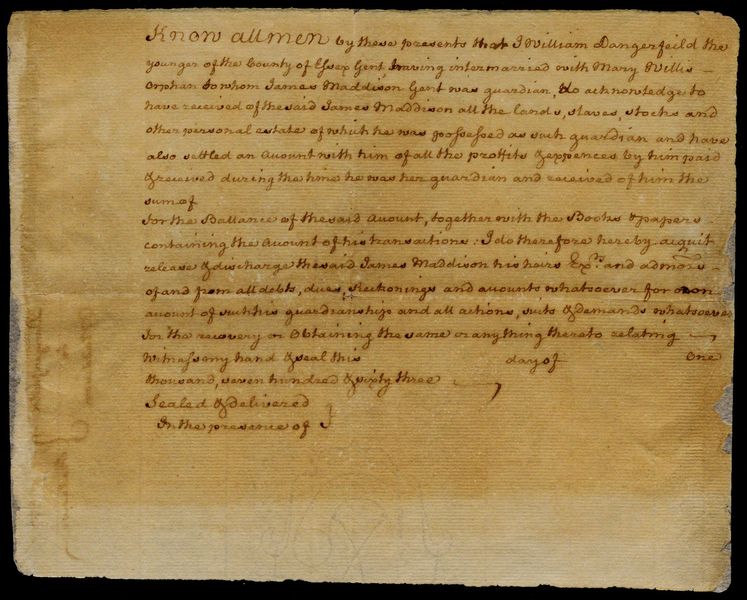 Know all men by these presents that I William Dangerfeild the
younger of the County of Essex Gent having intermarried with Mary Willis
Orphan to whom James Maddison Gent was guardian, do acknowledge to
have received of the said James Maddison all the lands, slaves, stocks and
other personal estate of which he was possessed as such guardian and have
also settled an Account with him of all the proffits & expences by him paid
& received during the time he was her guardian and received of him the
sum of
for the Ballance of the said Account, together with the Books & papers
containing the Account of his transactions: I do therefore hereby acquit
release & discharge the said James Maddison his heirs Exrs. and admors
of and from all debts, dues, Reckonings and accounts whatsoever for or on
account of such his guardianship and all actions, suits & demands whatsoever
for the recovery or Obtaining the same or anything thereto relating
Witness my hand & seal this day of One
thousand, seven hundred & sixty three
Sealed & delivered
In the presence of }